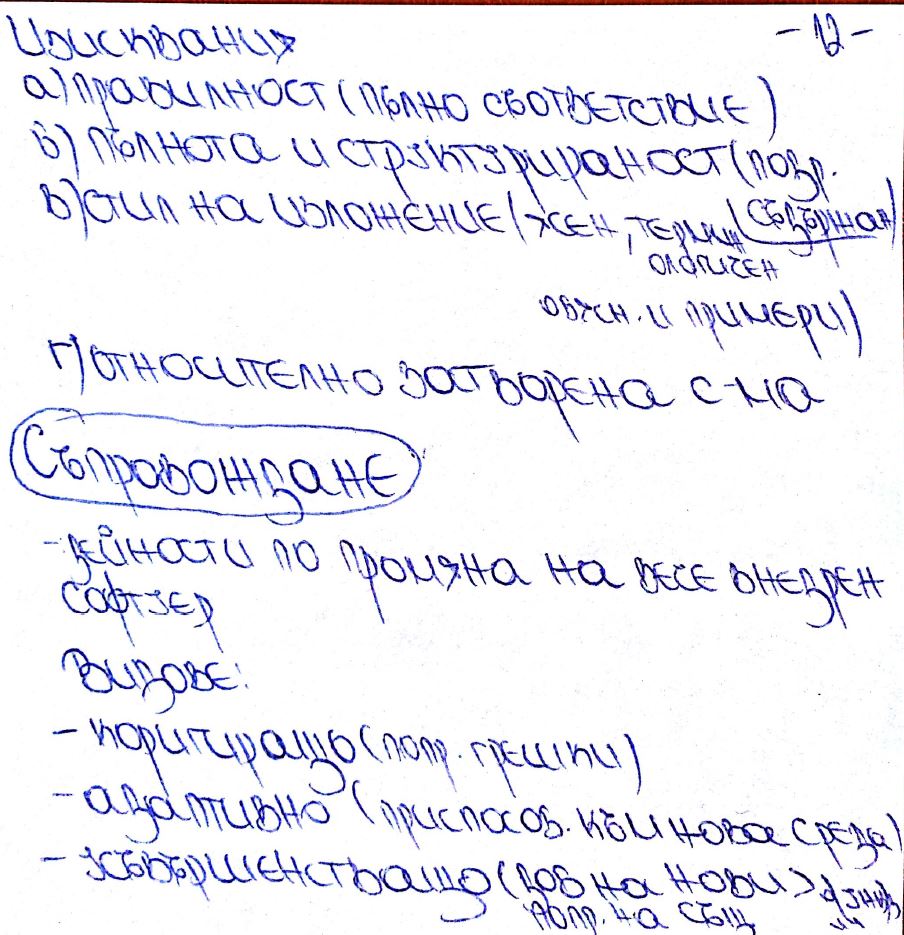 Изисквания -12-
а) правилност (пълно съответствие)
б) пълнота и структурираност (подр.
съдържан)
в) стил на изложение (ясен, термин
ологичен
обясн. и примери)
г) относително затворена с-ма
Съпровождане
- дейности по промяна на вече внедрен
софтуер
Видове:
- коригиращо (попр. грешки)
- адаптивно (приспособ. към нова среда)
- усъвършенстващо (доб на нови
попр. на същ